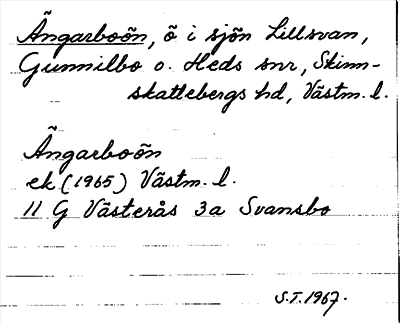 Ängarboön, ö i sjön Lillsvan,
Gunnilbo o. Heds snr, Skinn-
skattebergs hd, Västm. l.
Ängarboön
ek (1965) Västm. l.
11 G Västerås 3a Svansbo
S.T. 1967.